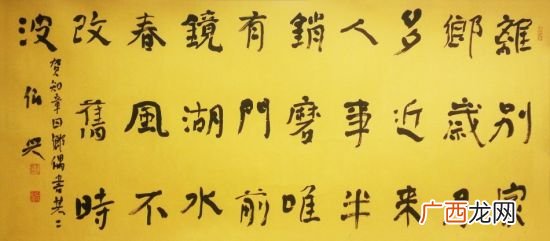 離別家
鄉歲月
多近來
人事半
銷磨唯
有門前
鏡湖水
春風不
改舊時
波
賀知章回鄉偶書其二
伯
广西龙网